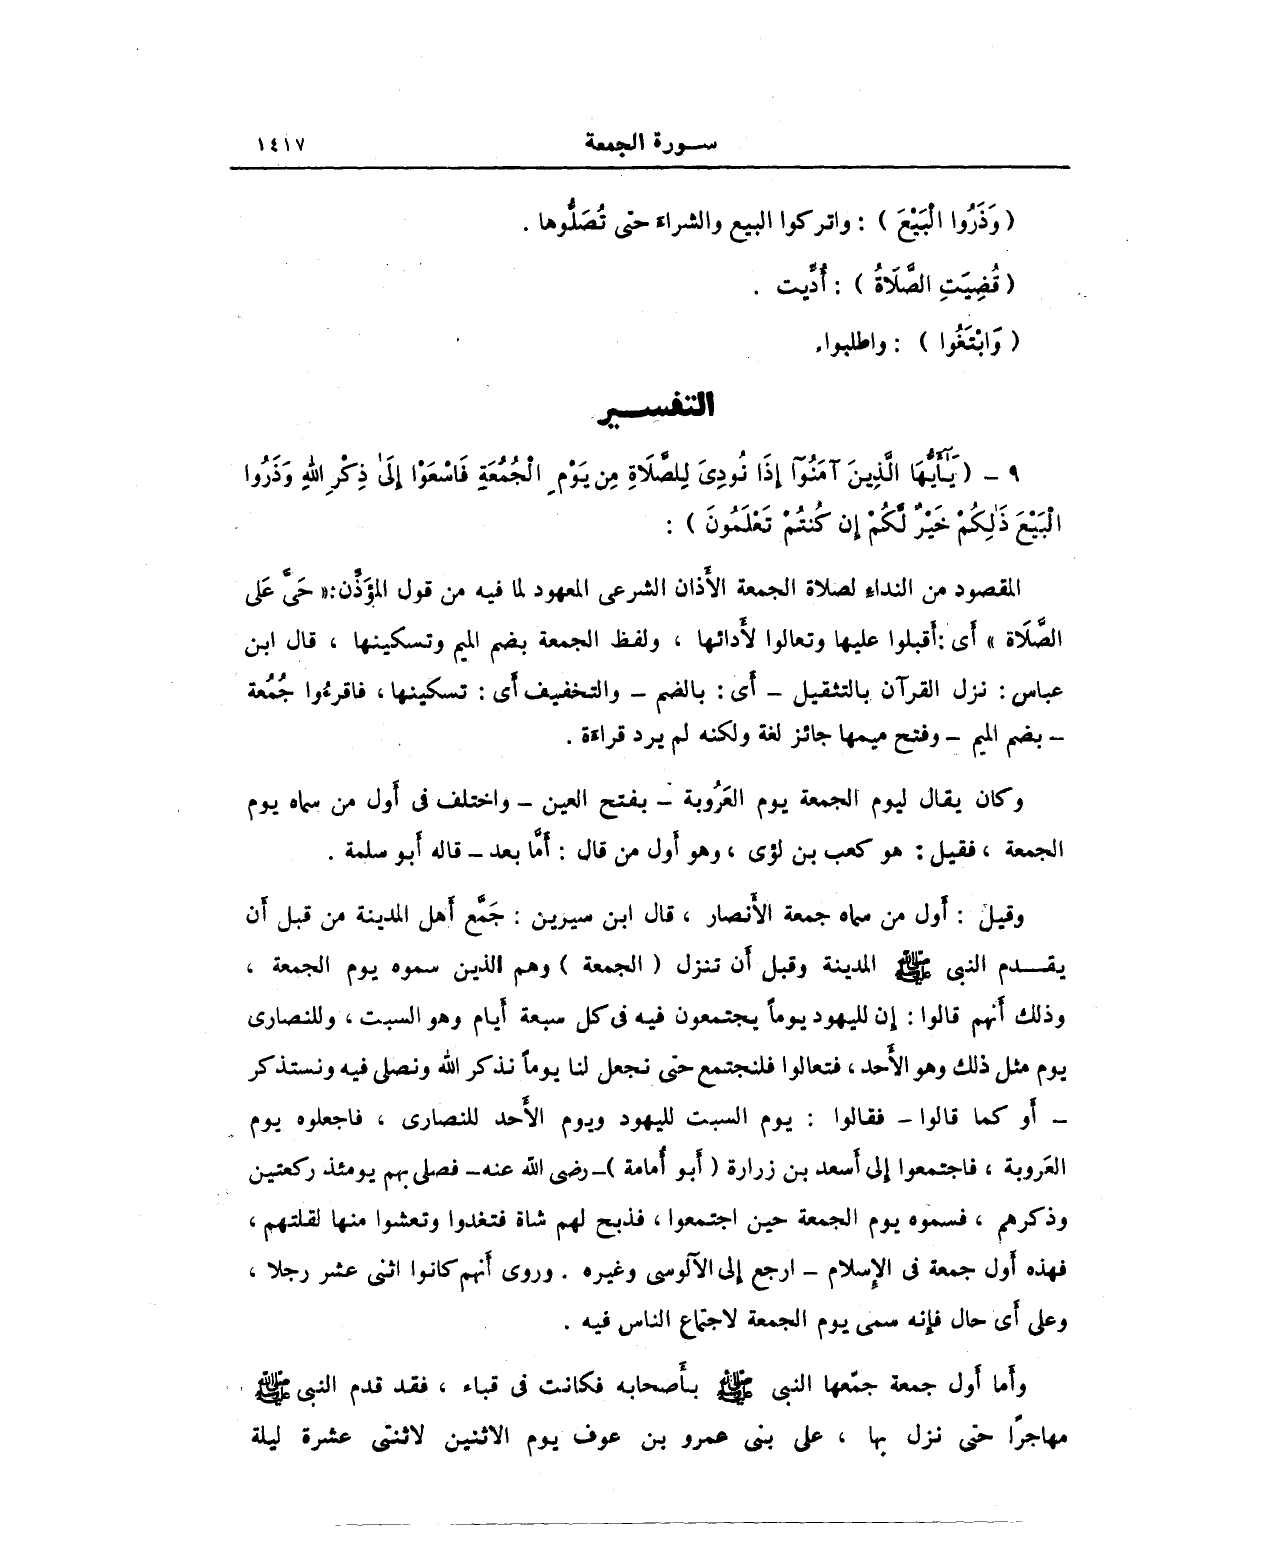 سورة الجمعة ١٤١٧
( وَذَرُوا الْبَيْعَ ) : واتركوا البيع والشراء حتى تُصَلُّوها .
( قُضِيَتِ الصَّلَاةُ ) : أُدِّيت .
( وَابْتَغُوا ) : واطلبوا.
التفسير
٩ – ( يَـٰٓأَيُّهَا الَّذِينَ آمَنُوٓا إِذَا نُودِىَ لِلصَّلَاةِ مِن يَوْمِ الْجُمُعَةِ فَاسْعَوْا إِلَىٰ ذِكْرِ اللهِ وَذَرُوا
الْبَيْعَ ذَٰلِكُمْ خَيْرٌ لَّكُمْ إِن كُنتُمْ تَعْلَمُونَ ) :
المقصود من النداء لصلاة الجمعة الأَذان الشرعى المعهود لما فيه من قول المؤَذِّن:« حَىَّ عَلَى
الصَّلَاة » أَى :أَقبلوا عليها وتعالوا لأَدائها ، ولفظ الجمعة بضم الميم وتسكينها ، قال ابن
عباس : نزل القرآن بالتثقيل – أَى : بالضم – والتخفيف أَى : تسكينها ، فاقرءُوا جُمُعة
– بضم الميم – وفتح ميمها جائز لغة ولكنه لم يرد قراءة .
وكان يقال ليوم الجمعة يوم العَرُوبة – بفتح العين – واختلف فى أَول من سماه يوم
الجمعة ، فقيل : هو كعب بن لؤى ، وهو أَول من قال : أَمَّا بعد – قاله أَبو سلمة .
وقيل : أَول من سماه جمعة الأَنصار ، قال ابن سيرين : جَمَّع أَهل المدينة من قبل أَن
يقدم النبى ﷺ المدينة وقبل أَن تنزل ( الجمعة ) وهم الذين سموه يوم الجمعة ،
وذلك أَنهم قالوا : إِن لليهود يوماً يجتمعون فيه فى كل سبعة أَيام وهو السبت ، وللنصارى
يوم مثل ذلك وهو الأَحد ، فتعالوا فلنجتمع حتى نجعل لنا يوماً نذكر الله ونصلى فيه ونستذكر
– أَو كما قالوا – فقالوا : يوم السبت لليهود ويوم الأَحد للنصارى ، فاجعلوه يوم
العَروبة ، فاجتمعوا إِلى أَسعد بن زرارة ( أَبو أُمامة )– رضى الله عنه – فصلى بهم يومئذ ركعتين
وذكرهم ، فسموه يوم الجمعة حين اجتمعوا ، فذبح لهم شاة فتغدوا وتعشوا منها لقلتهم ،
فهذه أول جمعة فى الإِسلام – ارجع إِلى الآلوسى وغيره . وروى أَنهم كانوا اثنى عشر رجلا ،
وعلى أَى حال فإِنه سمى يوم الجمعة لاجتماع الناس فيه .
وأَما أَول جمعة جمّعها النبى ﷺ بأَصحابه فكانت فى قباء ، فقد قدم النبى ﷺ
مهاجرًا حتى نزل بها ، على بنى عمرو بن عوف يوم الاثنين لاثنتى عشرة ليلة